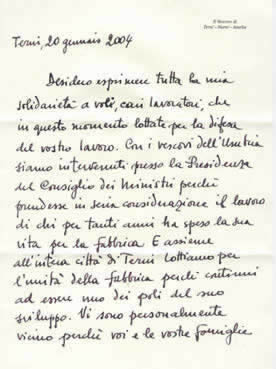 Il Vescovo di
Terni - Narni - Amelia
Terni, 20 gennaio 2004
Desidero esprimere tutta la mia
solidarietà a voi, cari lavoratori, che
in questo momento lottate per la difesa
del vostro lavoro. Con i vescovi dell'Umbria
siamo intervenuti presso la Presidenza
del Consiglio dei Ministri perché
prendesse in seria considerazione il lavoro
di chi per tanti anni ha speso la sua
vita per la fabbrica. E assieme
all'intera città di Terni lottiamo per
l'unità della fabbrica perché continui
ad essere uno dei poli del suo
sviluppo. Vi sono personalmente
vicino perché voi e le vostre famiglie